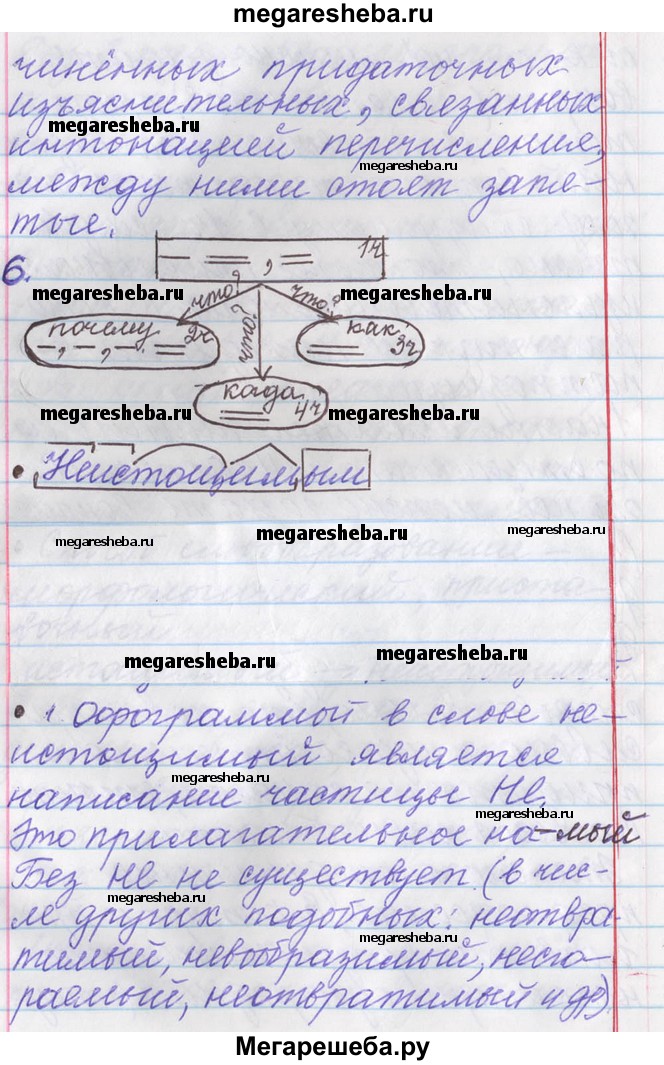 megaresheba.ru
чинённых придаточных
изъяснительных, связанных
megaresheba.ru
интонацией перечисления,
megaresheba.ru
между ними стоят запя-
тые.
6.
, 1ч
megaresheba.ru
что? что? что?
megaresheba.ru
почему 2ч
-, -, -
как 3ч
когда 4ч
megaresheba.ru
megaresheba.ru
• Неистощимым
megaresheba.ru
megaresheba.ru
megaresheba.ru
megaresheba.ru
megaresheba.ru
• 1. Орфограммой в слове не-
истощимый является
megaresheba.ru
написание частицы Не.
megaresheba.ru
Это прилагательное на -мый
Без не не существует (в чис-
megaresheba.ru
ле других подобных: неотвра-
megaresheba.ru
тимый, невообразимый, несго-
раемый, неотвратимый и др)
Мегарешеба.ру